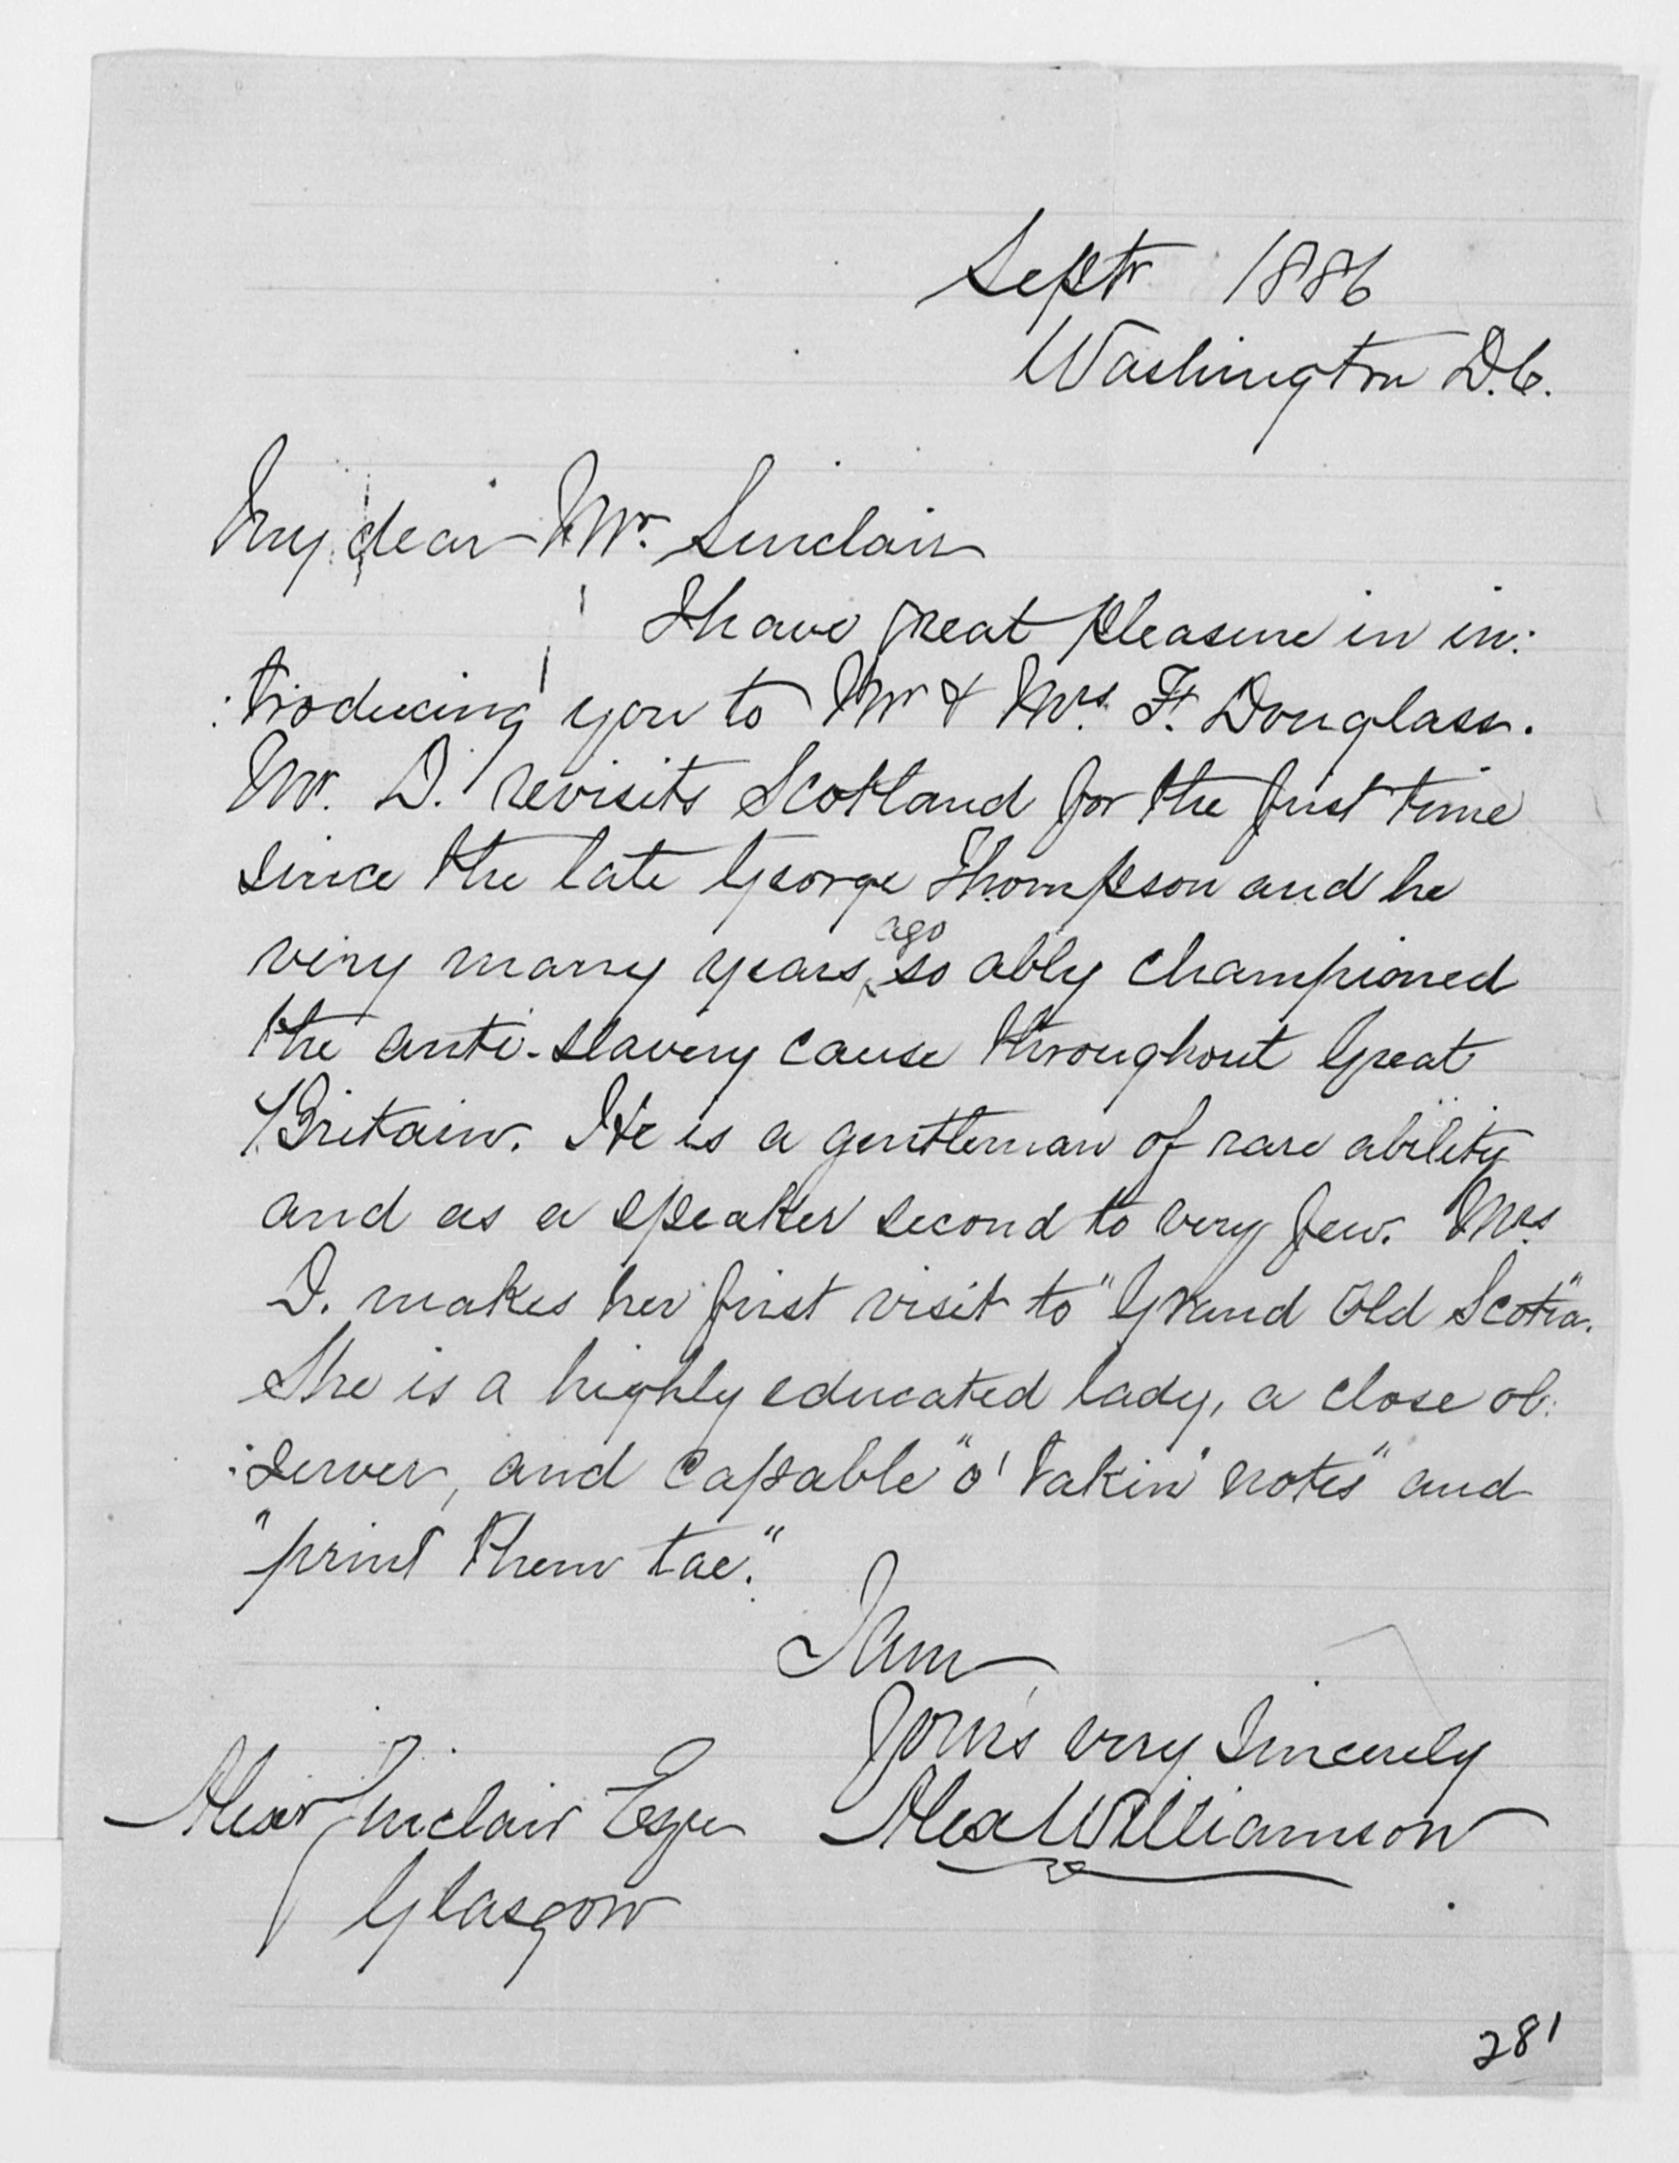 Septr 1886
Washington D.C.
My dear Mr. Sinclair
I have great pleasure in in:
:troducing you to Mr & Mrs. F. Douglass.
Mr. D. revisits Scotland for the first time
since the late George Thompson and he
ago
very many years so ably championed
the anti-slavery cause throughout Great
Britain. He is a gentleman of rare ability
and as a speaker second to very few. Mrs.
D. makes her first visit to "Grand Old Scotia".
She is a highly educated lady, a close ob:
:server, and capable "o' takin' notes" and
"print them tae."
I am
Yours very Sincerely
Alex Williamson
Alexr Sinclair Esqre
Glasgow
281